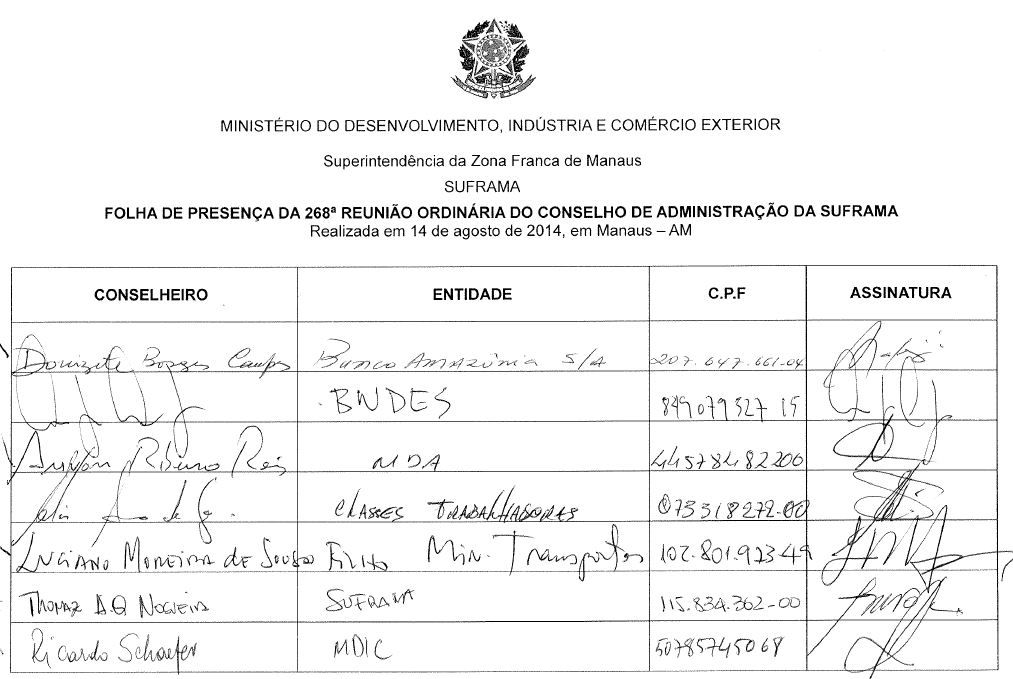 MINISTÉRIO DO DESENVOLVIMENTO, INDÚSTRIA E COMÉRCIO EXTERIOR
Superintendência da Zona Franca de Manaus
SUFRAMA
FOLHA DE PRESENÇA DA 268ª REUNIÃO ORDINÁRIA DO CONSELHO DE ADMINISTRAÇÃO DA SUFRAMA
Realizada em 14 de agosto de 2014, em Manaus – AM
CONSELHEIRO ENTIDADE C.P.F ASSINATURA
Donizete Borges Campos Banco Amazônia S/A 207.647.661-04
BNDES 849079527 15
Ribeiro Reis MDA 44578482200
CLASSES TRABALHADORAS 073318272-00
Luciano Moreira de Sousa Filho Min. Transportes 102.801.923-49
Thomaz A.Q Nogueira SUFRAMA 115.834.362-00
Ricardo Schaefer MDIC 50785745068